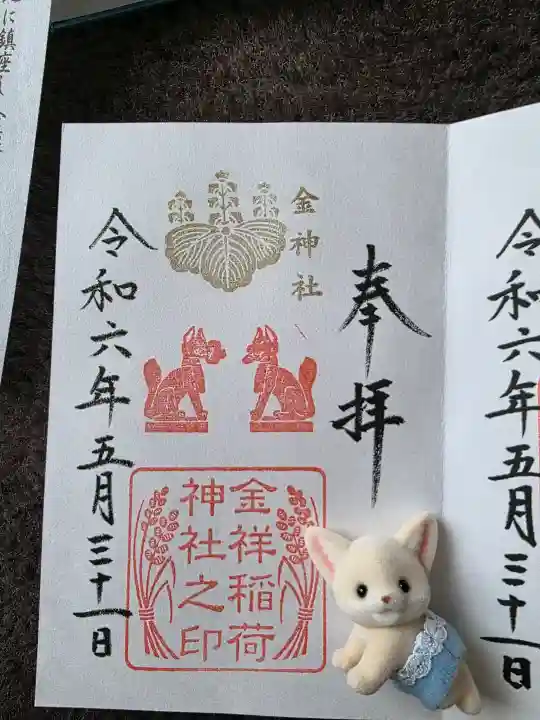 に鎮座
令和六年五月三十一日
奉拝
金神社
金祥稲荷
神社之印
令和六年五月三十一日